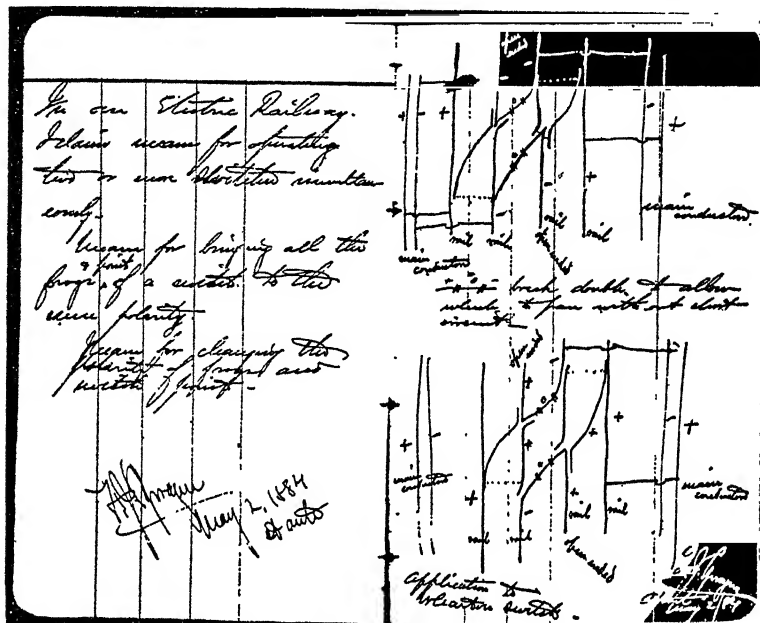 In an Electric Railway.
I claim means for operating
two or more switches simultan
eously.
Means for bringing all the
frogs & point of a switch to the
same polarity
Means for changing the
polarity of frogs and
switch point -
May 2, 1884
open ended
- - -
+ + - +
- + -
main conductor
rail rail open ended rail rail
main conductor.
break double to allow
wheels to pass with out short
circuit -
open ended
+ - + - + + - +
main conductor
main conductor
+ - + +
rail rail rail rail
open ended
Application to
Wharton Switch -
May 2/84